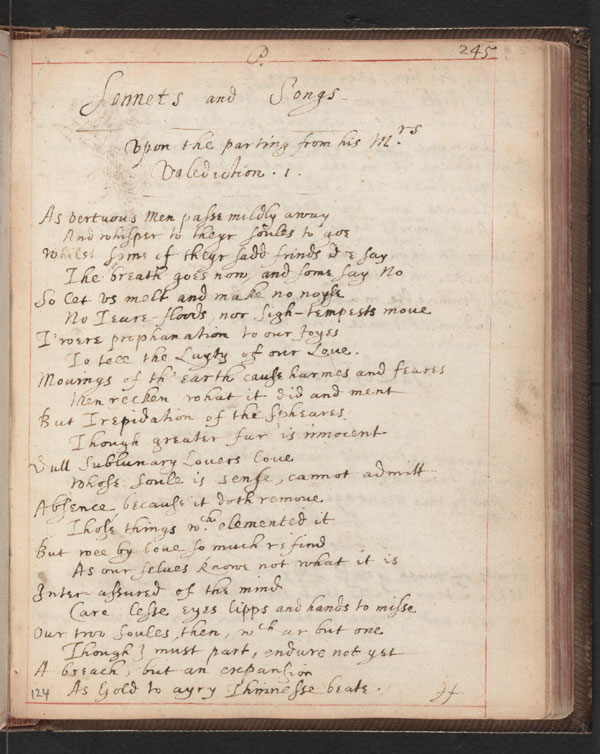 P. 245
Sonnets and Songs.
Vpon the parting from his Mrs.
Valediction. 1.
As vertuous Men passe mildly away
And whisper to theyr soules to goe
Whilst some of theyr sadd frinds doe say
The breath goes now, and some say No
So Let vs melt and make no noyse
No Teare-floods, nor sigh-tempests move
T'were prophanation to our Joyes
To tell the Layty of our Love.
Mouings of th'earth cause harmes and feares
Men recken what it did and ment
But Trepidation of the Spheares
Though greater far is innocent
Dull Sublunary Louers Loue
Whose soule is sense, cannot admitt
Absence because it doth remoue
Those things wch elemented it
But wee by loue so much refind
As our selues know not what it is
Inter assured of the mind
Care lesse eyes lipps and hands to misse
Our two soules, then, wch ar but one
Though I must part, endure not yet
A breach, but an expansion
As Gold to ayry Thinnesse beate.
124